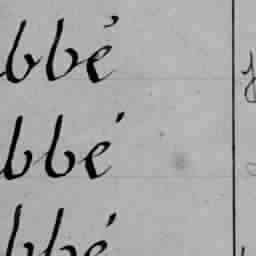 bbé
bbé
bbé